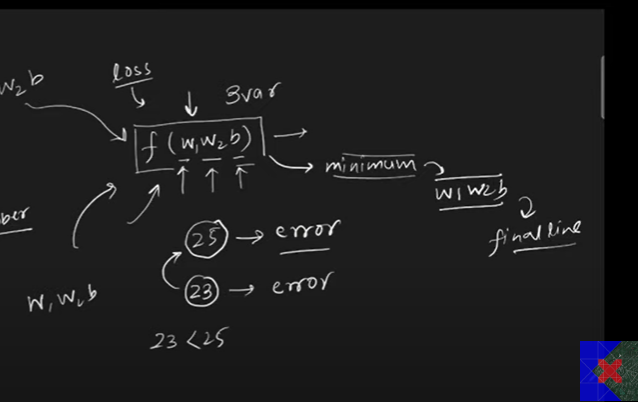 w₂b
loss
3var
f(w₁w₂b)
minimum
w₁w₂b
final line
ber
25 → error
23 → error
w₁w₂b
23 < 25